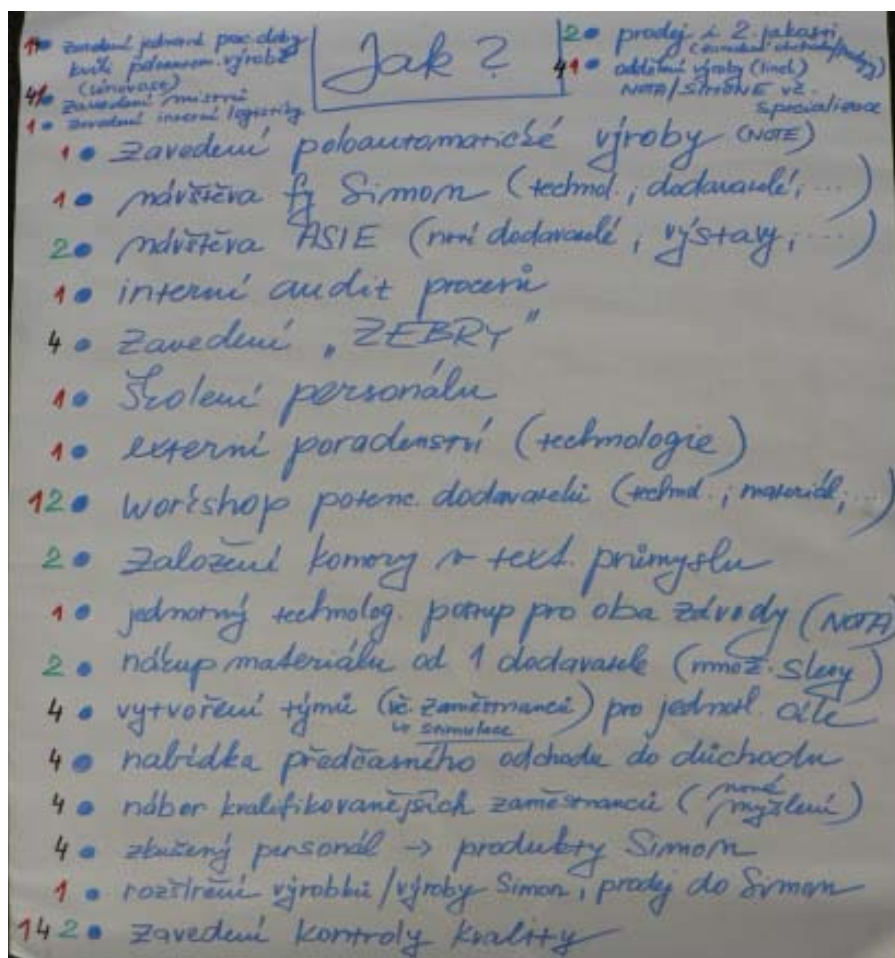 Jak ?
1 • zavedení jednotné prac. doby
kvůli poloautom. výrobě
4 1 • zavedení mistrů
1 • zavedení interní logistiky
2 • prodej i 2. jakosti
4 1 • oddělení výroby (linek)
NOTA/SIMONE vč.
specializace
1 • zavedení poloautomatické výroby (NOTE)
1 • návštěva fy Simon (technol., dodavatelé, ...)
2 • návštěva ASIE (noví dodavatelé, výstavy, ...)
1 • interní audit procesů
4 • zavedení „ZEBRY"
1 • školení personálu
1 • externí poradenství (technologie)
1 2 • workshop potenc. dodavatelů (technol., materiál, ...)
2 • založení komory v text. průmyslu
1 • jednotný technolog. postup pro oba závody (NOTA)
2 • nákup materiálu od 1 dodavatele (množ. slevy)
4 • vytvoření týmů (vč. zaměstnanců) pro jednotl. cíle
↳ stimulace
4 • nabídka předčasného odchodu do důchodu
4 • nábor kvalifikovanějších zaměstnanců (nové myšlení)
4 • zkušený personál → produkty Simon
1 • rozšíření výrobků/výroby Simon, prodej do Simon
1 4 2 • zavedení kontroly kvality